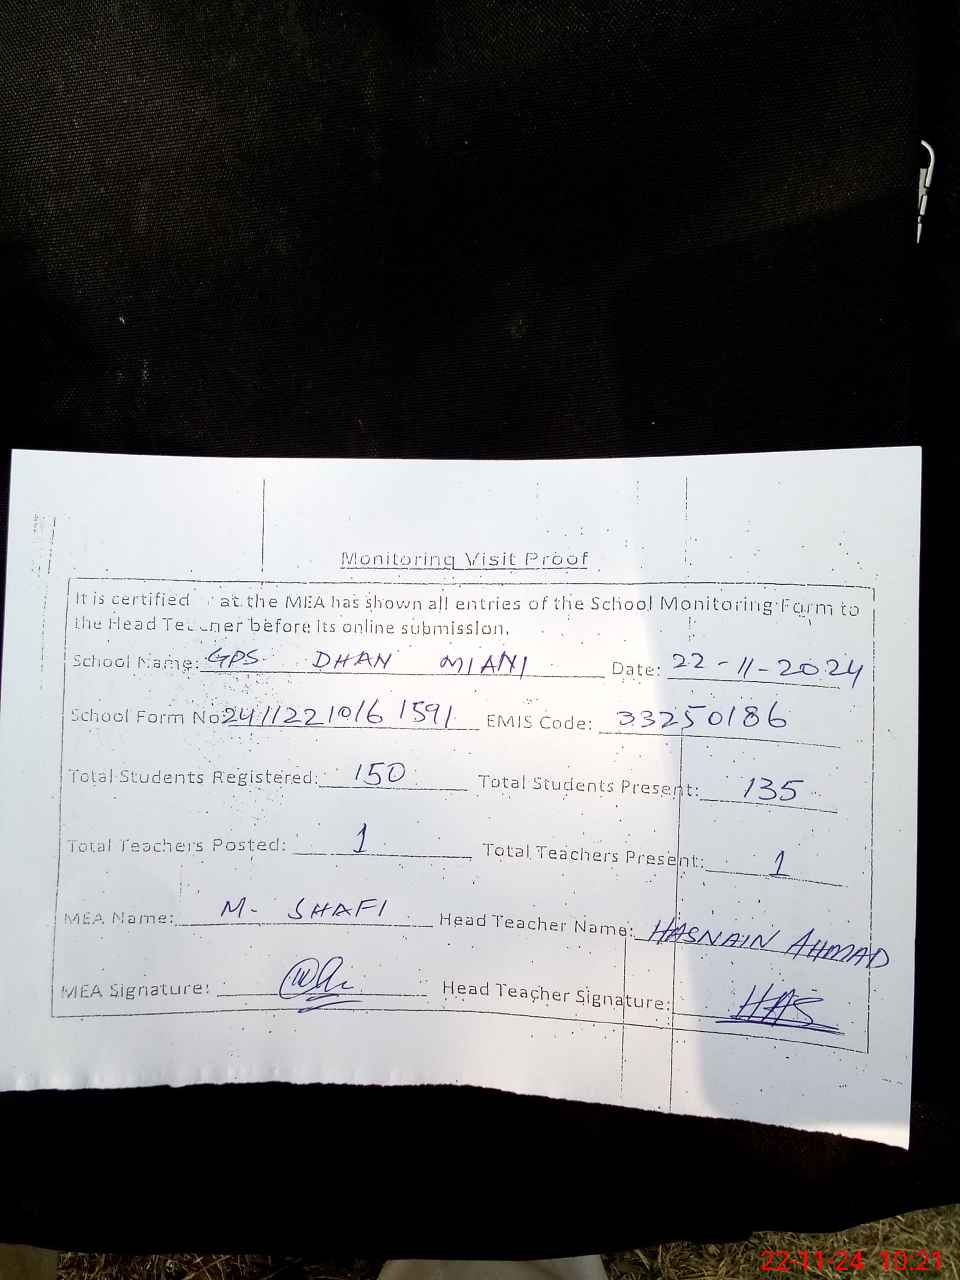 Monitoring Visit Proof
It is certified at the MEA has shown all entries of the School Monitoring Form to
the Head Teacher before its online submission.
School Name: GPS DHAN MIANI Date: 22-11-2024
School Form No: 24112210161591 EMIS Code: 33250186
Total Students Registered: 150 Total Students Present: 135
Total Teachers Posted: 1 Total Teachers Present: 1
MEA Name: M. SHAFI Head Teacher Name: HASNAIN AHMAD
MEA Signature: Head Teacher Signature: HAS
22-11-24 10:21